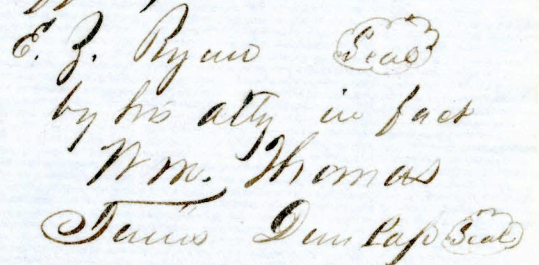 E. Z. Ryan Seal
by his atty in fact
Wm. Thomas
Dunlap Seal